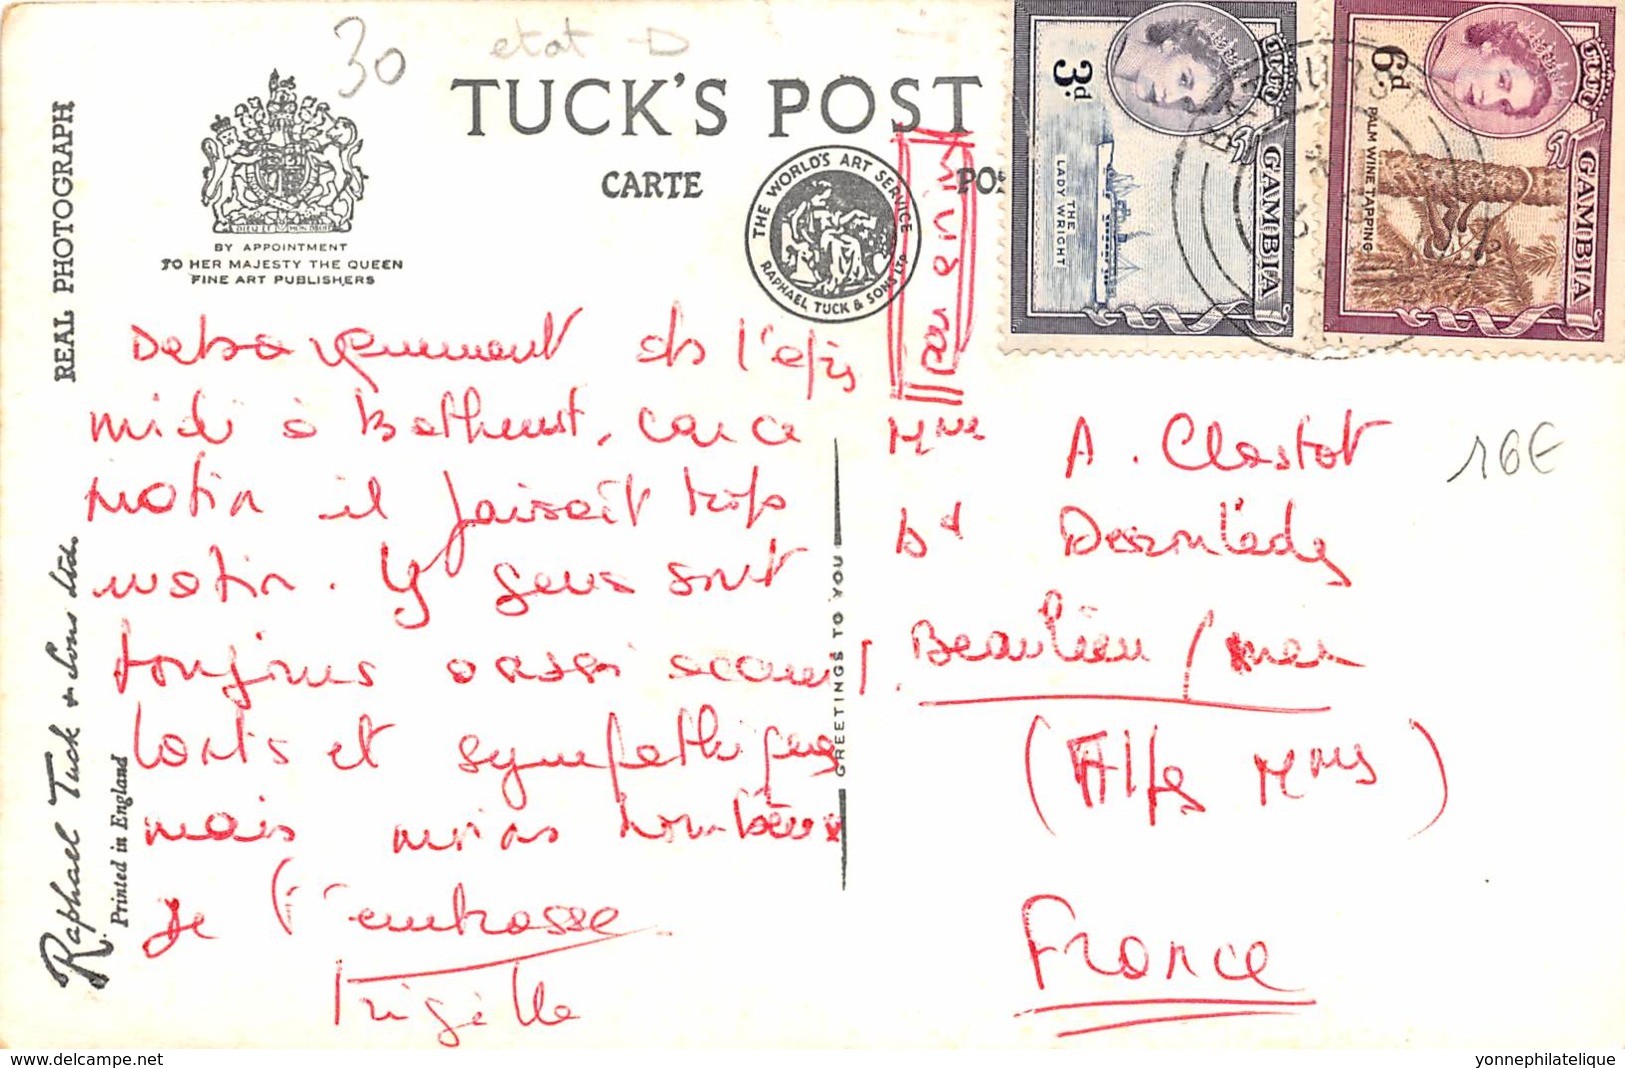 30
etat
TUCK'S POST
CARTE
BY APPOINTMENT
TO HER MAJESTY THE QUEEN
FINE ART PUBLISHERS
DIEU ET MON DROIT
REAL PHOTOGRAPH
THE WORLD'S ART SERVICE
RAPHAEL TUCK & SONS LTD
3d
THE
LADY WRIGHT
GAMBIA
6d
PALM WINE TAPPING
GAMBIA
par avion
Debarquement de l'après
midi à Bathurst, car ce
matin il faisait trop
matin. Y gens sont
toujours aussi accueil
lants et sympathiques
mais moins nombreux
Je t'embrasse
Raphael Tuck & Sons Ltd.
Printed in England
GREETINGS TO YOU
Mme A. Clastot
Bd
Beaulieu / mer
(Alpes Mmes)
France
16€
www.delcampe.net
yonnephilatelique